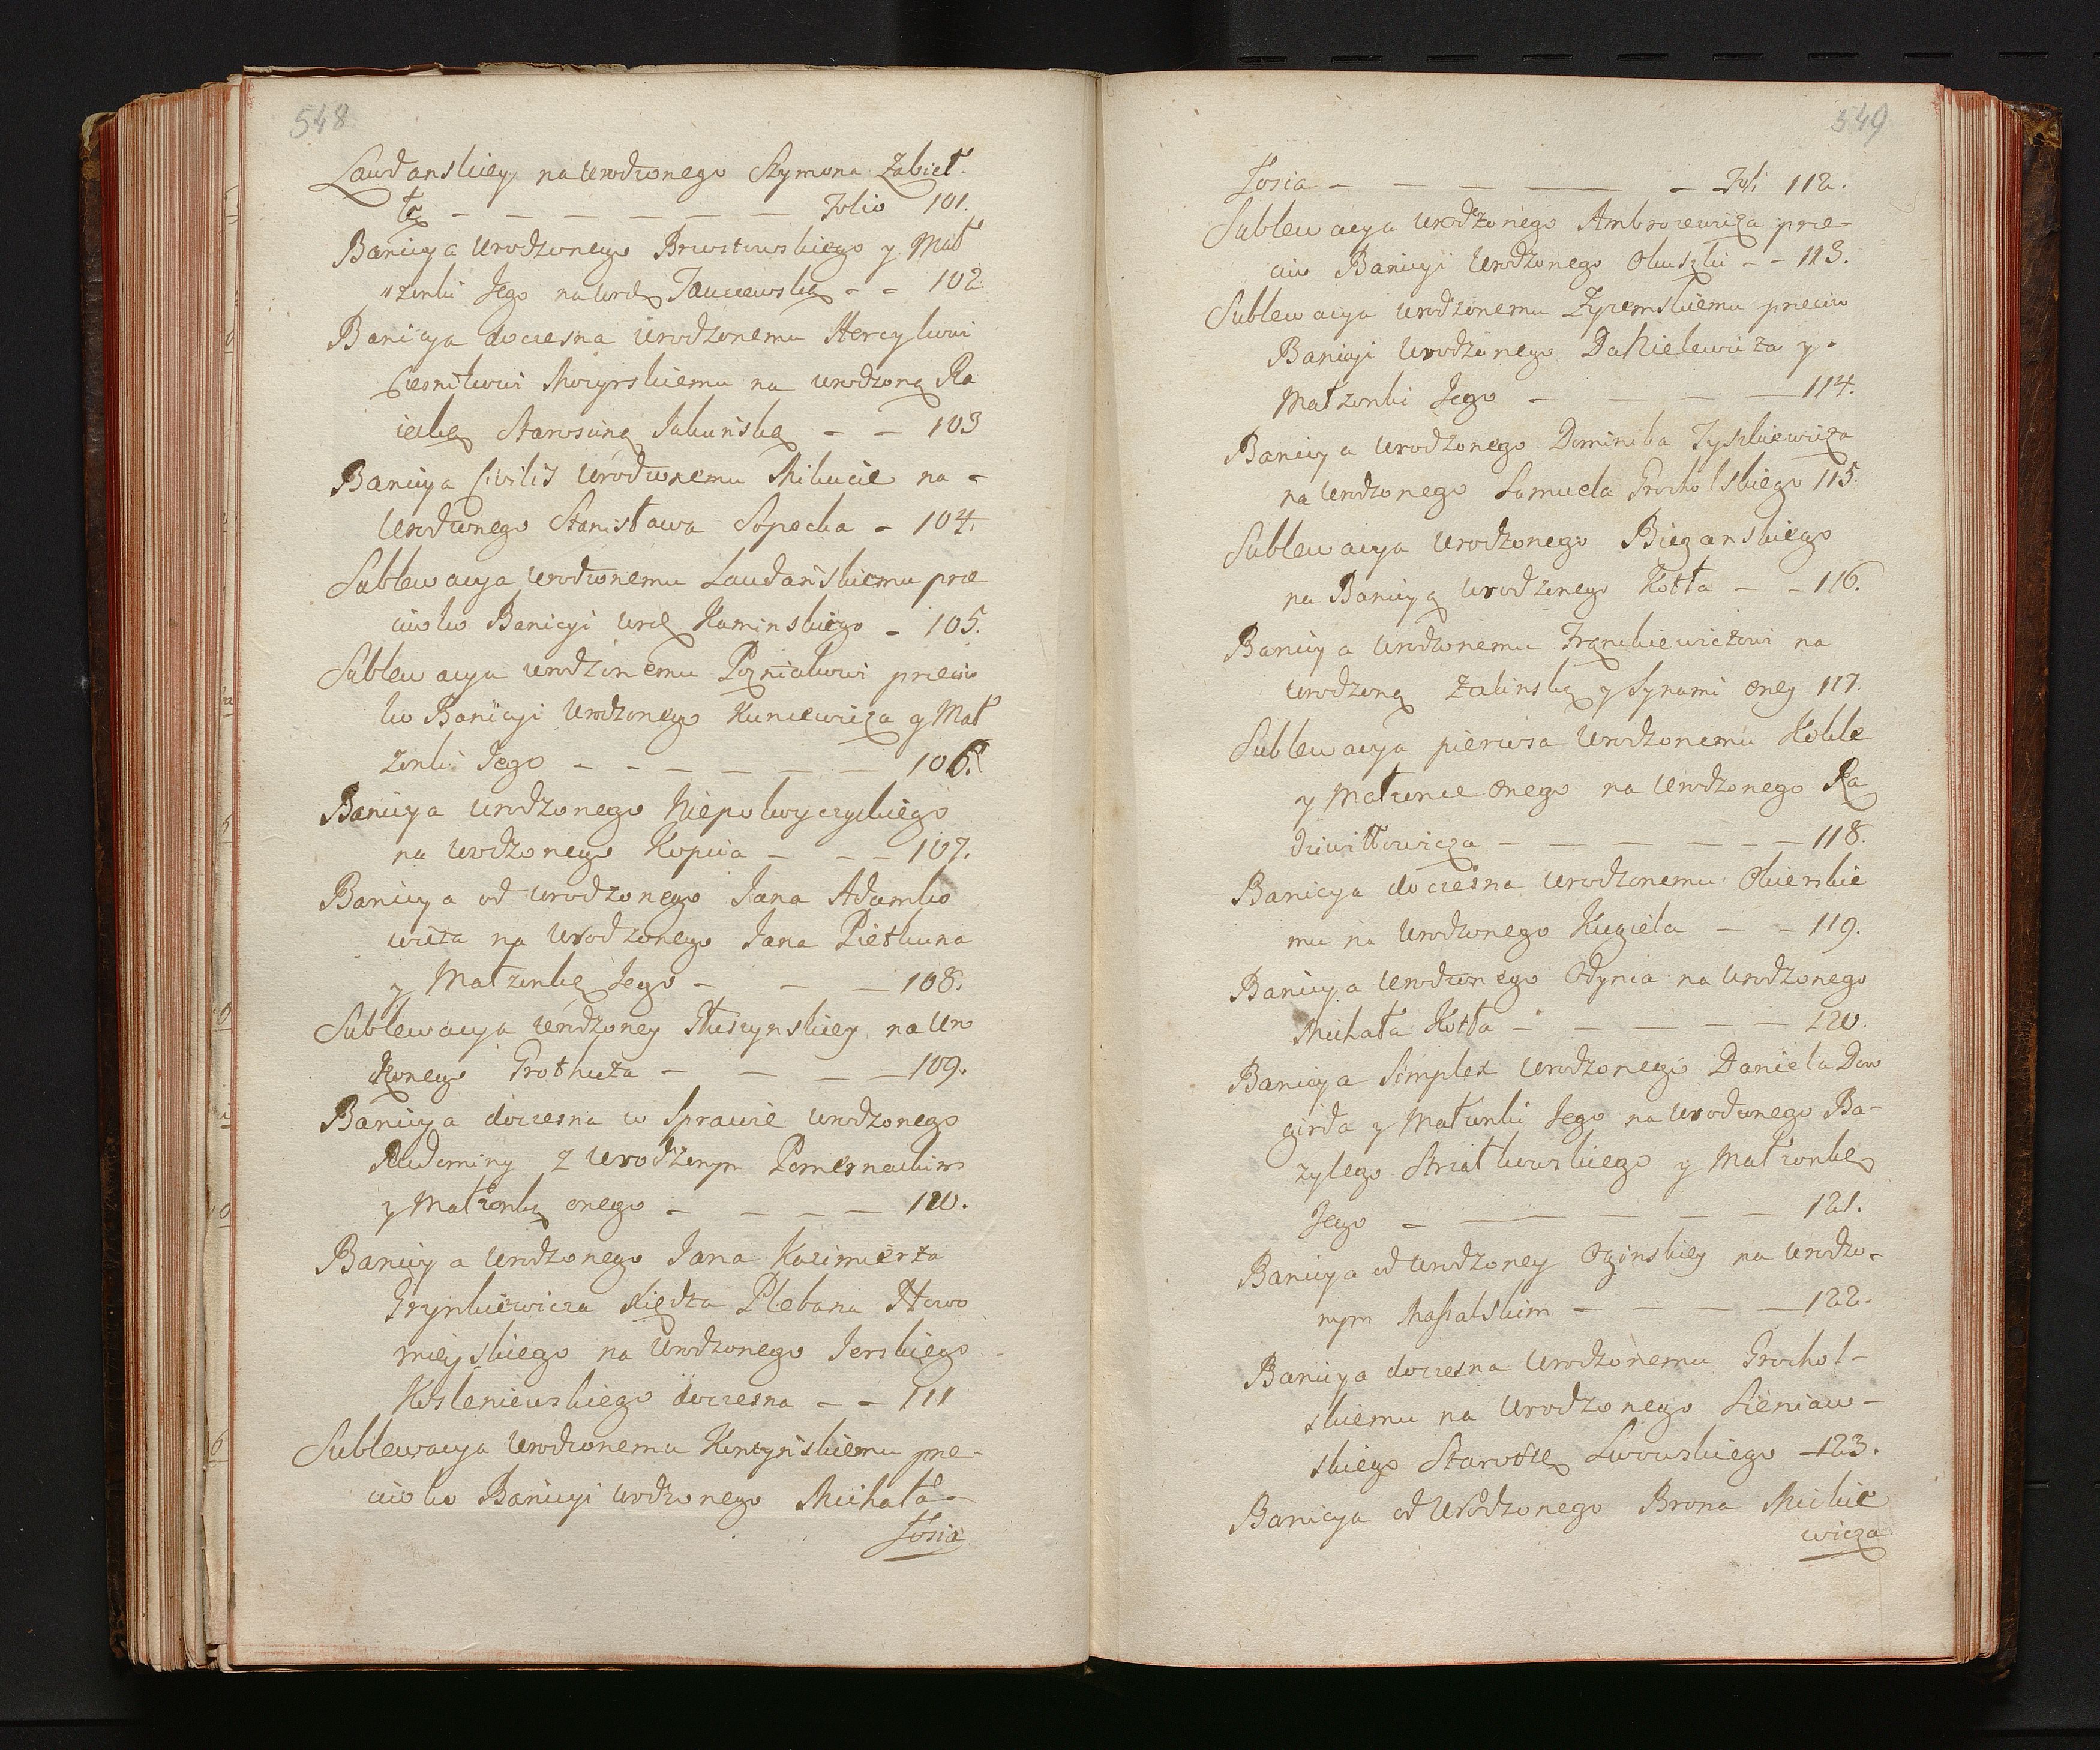 548
Laudanskiey na Urodzonego Szymona Zabieł
łę — — — — — — Folio 101.
Banicya Urodzonego Brzostowskiego y Mał
"żonki Jego na Urdę — — 102
Banicya doczesna Urodzonemu
Mozyrskiemu na Urodzoną Ra
iecką Starościną — — 103
Banicya Civilis Urodzonemu Mikucie na -
Urodzonego Stanisława Sopoćka - 104.
Sublewacya Urodzonemu Laudańskiemu prze
ciwko Banicyi Urdę Kaminskiego - 105.
Sublewacya Urodzonemu Pozniakowi przeciw
ko Banicyi Urodzonego Kuncewicza y Mał
żonki Jego — — — — — — 106.
Banicya Urodzonego Niepokoyczyckiego
na Urodzonego Kopcia — — — 107.
Banicya od Urodzonego Jana Adamko
wicza na Urodzonego Jana Pietkuna
y Małżonkę Jego — — — 108.
Sublewacya Urodzoney Tłuszynskiey na Uro
dzonego Grothuza — — — — 109.
Banicya doczesna w Sprawie Urodzonego
Rudominy z Urodzonym Pomernackim
y Małżonką onego — — — — 110.
Banicya Urodzonego Jana Kazimierza
Grynkiewicza Xiędza Plebana Nowo
mieyskiego na Urodzonego Jerskiego
Kośleniewskiego doczesna — — 111
Sublewacya Urodzonemu Kinczynskiemu prze-
ciwko Banicyi Urodzonego Michała -
Tosia
549
Tosia — — — — — Foli 112.
Sublewacya Urodzonego Ambrozewicza prze-
ciw Banicyi Urodzonego Okuszki — — 113.
Sublewacya Urodzonemu Żyzemskiemu przeciw
Banicyi Urodzonego Danielewicza y -
Małżonki Jego — — — — 114.
Banicya Urodzonego Dominika Tyszkiewicza
na Urodzonego Samuela Grocholskiego 115.
Sublewacya Urodzonego Bieganskiego
na Banicyą Urodzonego Kotła — — 116.
Banicya Urodzonemu Franckiewiczowi na
Urodzoną Zalinską y Synami oney 117.
Sublewacya pierwsza Urodzonemu Kobble
y Małżonce onego na Urodzonego Ra
dziwiłłowicza — — — — — — 118.
Banicya doczesna Urodzonemu Okierskie
mu na Urodzonego Kugiela — — 119.
Banicya Urodzonego Odynca na Urodzonego
Michała Kotła — — — — — 120.
Banicya Simplex Urodzonego Daniela Dow
girda y Małżonki Jego na Urodzonego Ba-
zylego Światkowskiego y Małżonkę
Jego — — — — — — 121.
Banicya od Urodzoney Oginskiey na Urodzo-
nym Massalskim — — — — 122.
Banicya doczesna Urodzonemu Grochol-
skiemu na Urodzonego Sieniaw-
skiego Starostę Lwowskiego — 123.
Banicya od Urodzonego Brona Mickie
wicza